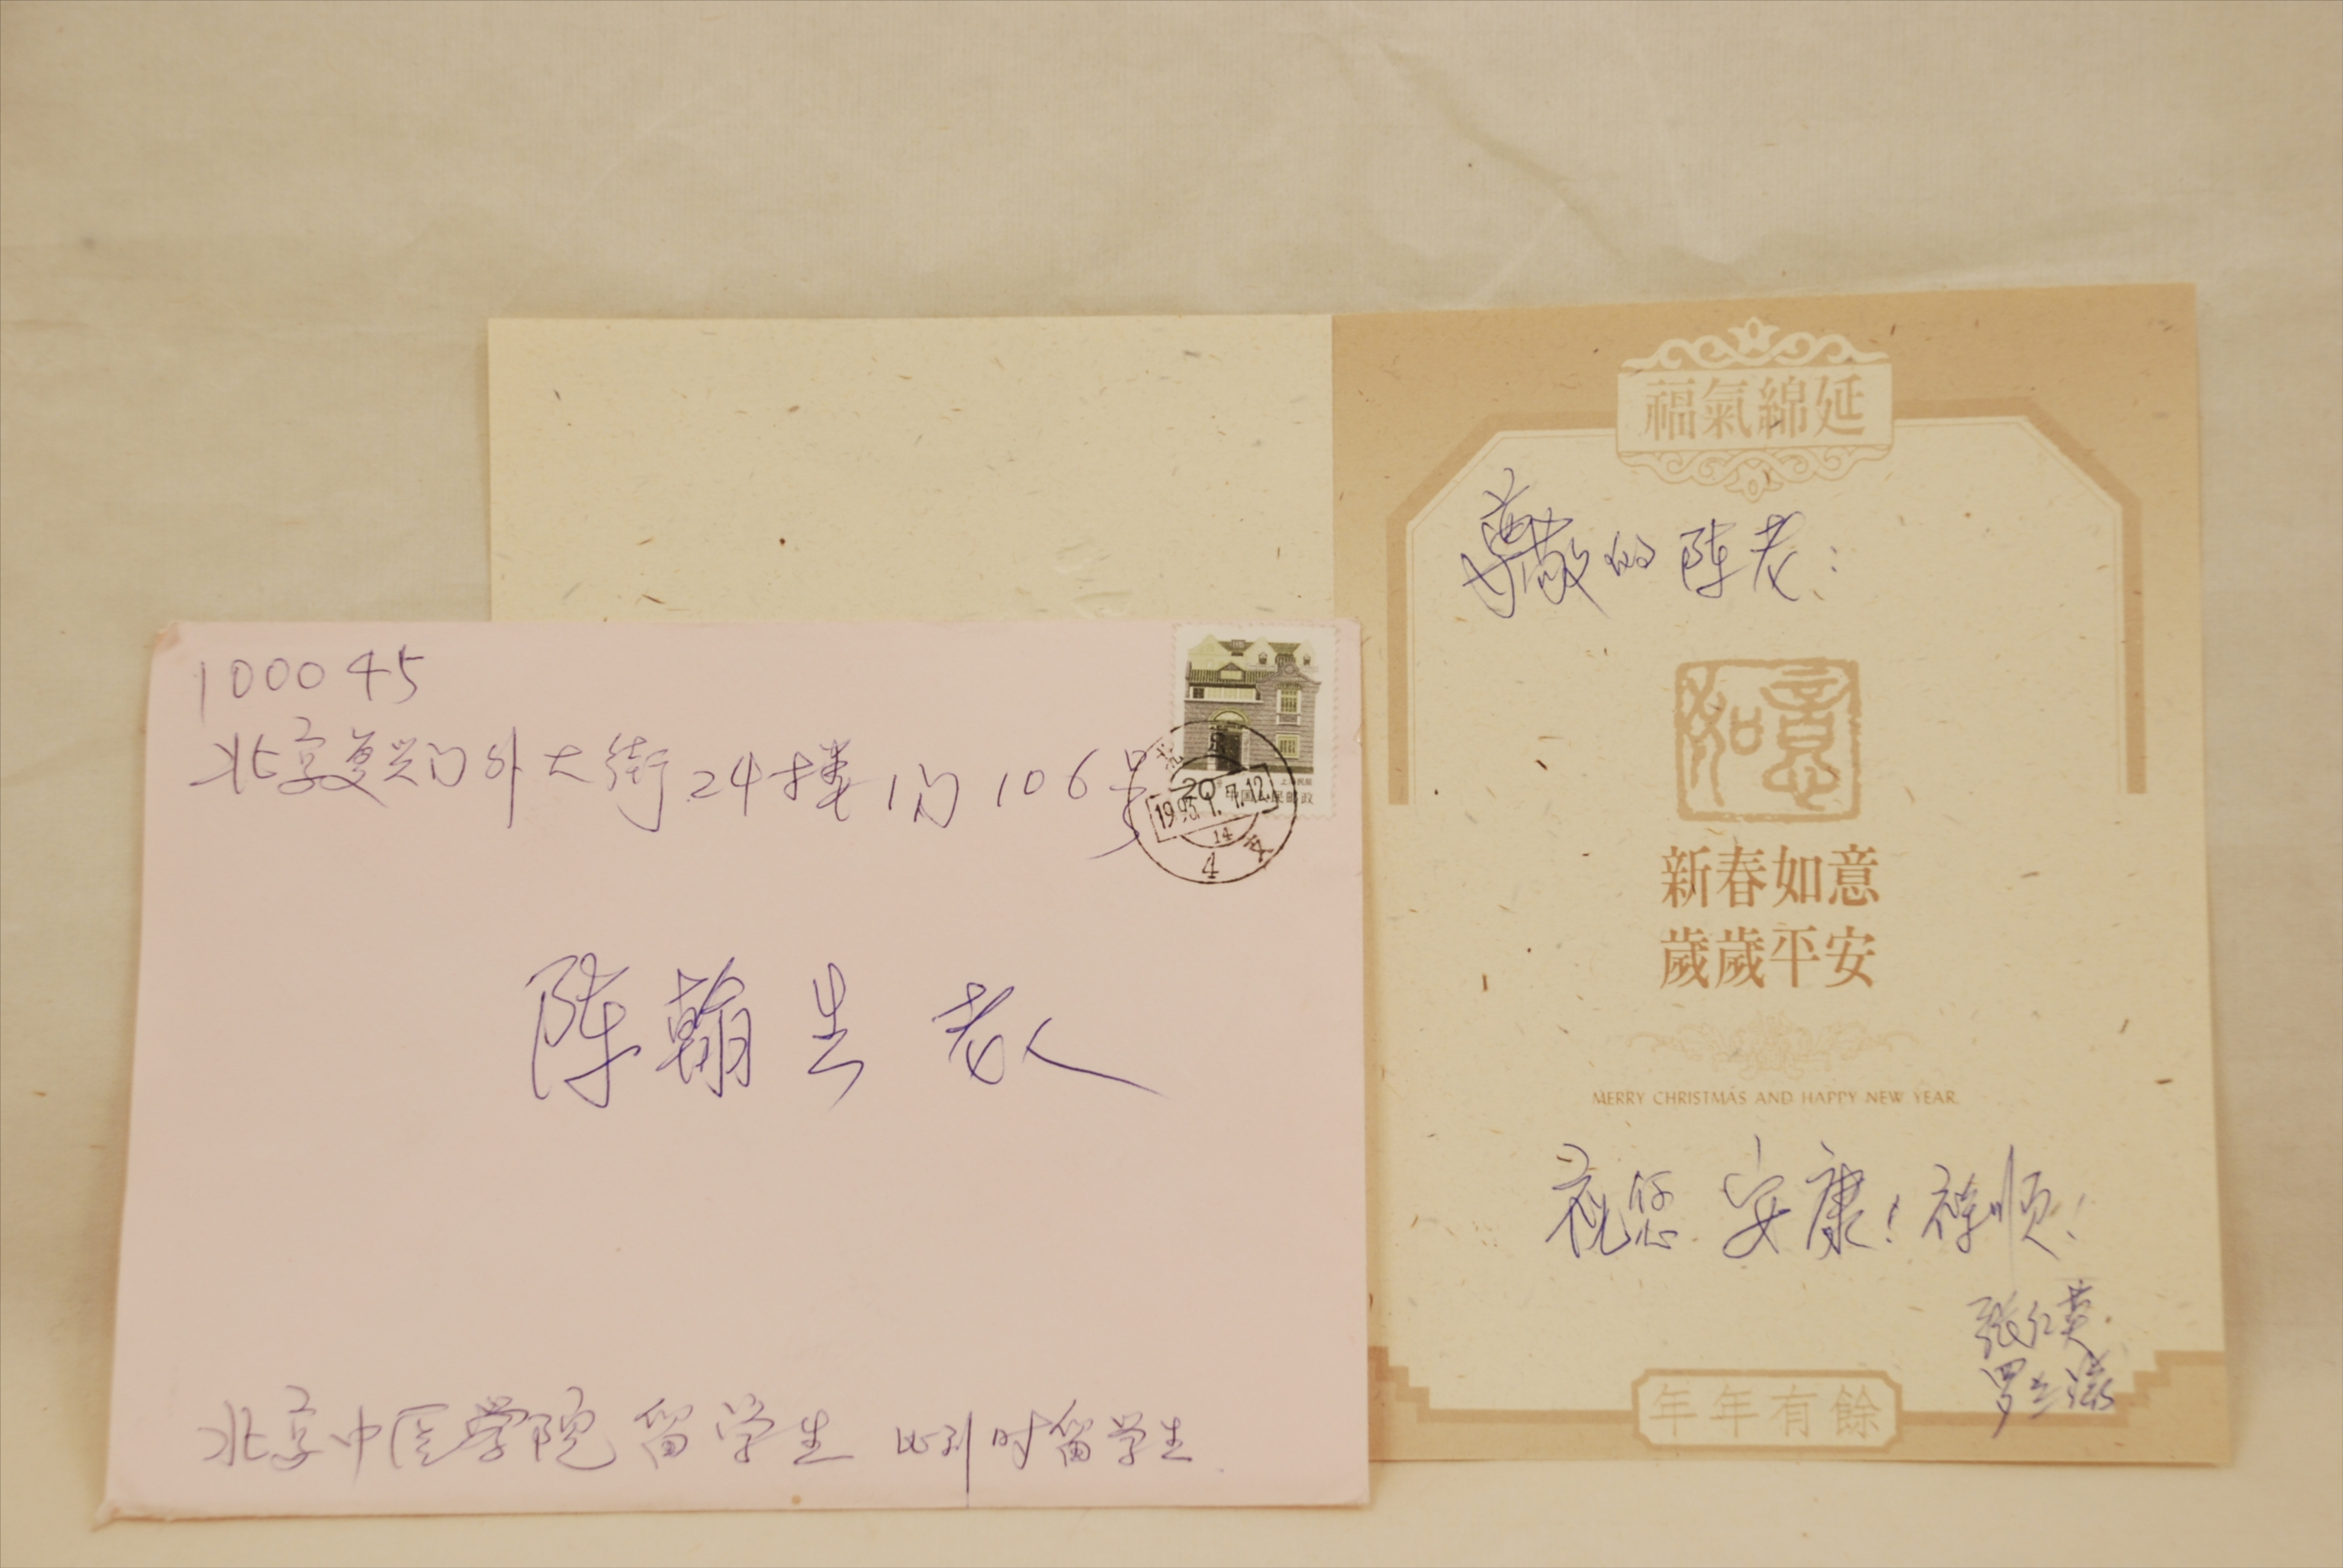 100045
北京复兴门外大街24楼1门106号
20
上海民居
中国人民邮政
北京
14
4
支
陈翰生 老人
北京中医学院留学生 比利时留学生
福氣綿延
尊敬的陈老:
如意
新春如意
歲歲平安
MERRY CHRISTMAS AND HAPPY NEW YEAR
祝您 安康!祥顺!
张仁英
年年有餘